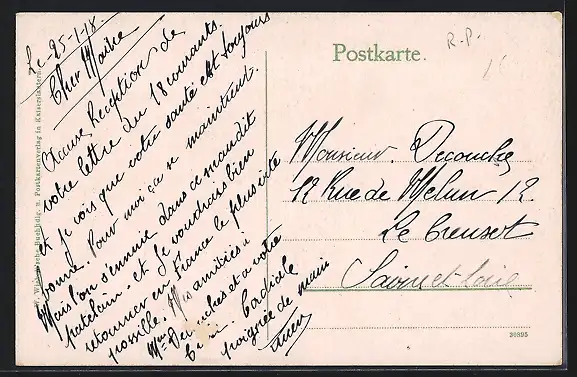 Le 25-1-18.
Cher Maitre
Accuse Réception de
votre lettre du 18 courants.
et je vois que votre santé est toujours
bonne. Pour moi ça se maintient.
Mais l'on s'ennuie dans ce maudit
patelain. et je voudrais bien
retourner en France le plus vite
possible. Mes amitiés à
Mme Decouches et a votre
Cordiale
poignée de main
Postkarte.
R.P.
Monsieur. Decouches
12 Rue de Melun 12.
Le Creusot
Saône et Loire
30895